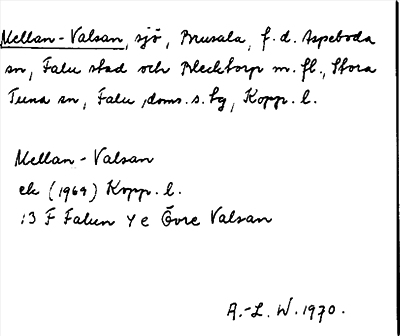 Mellan-Valsan, sjö, Brusala, f.d. Aspeboda
sn, Falu stad och Blecktorp m. fl., Stora
Tuna sn, Falu doms.s. tg, Kopp. l.
Mellan-Valsan
ek (1969) Kopp. l.
13 F Falun Y e Övre Valsan
A.-L. W. 1970.